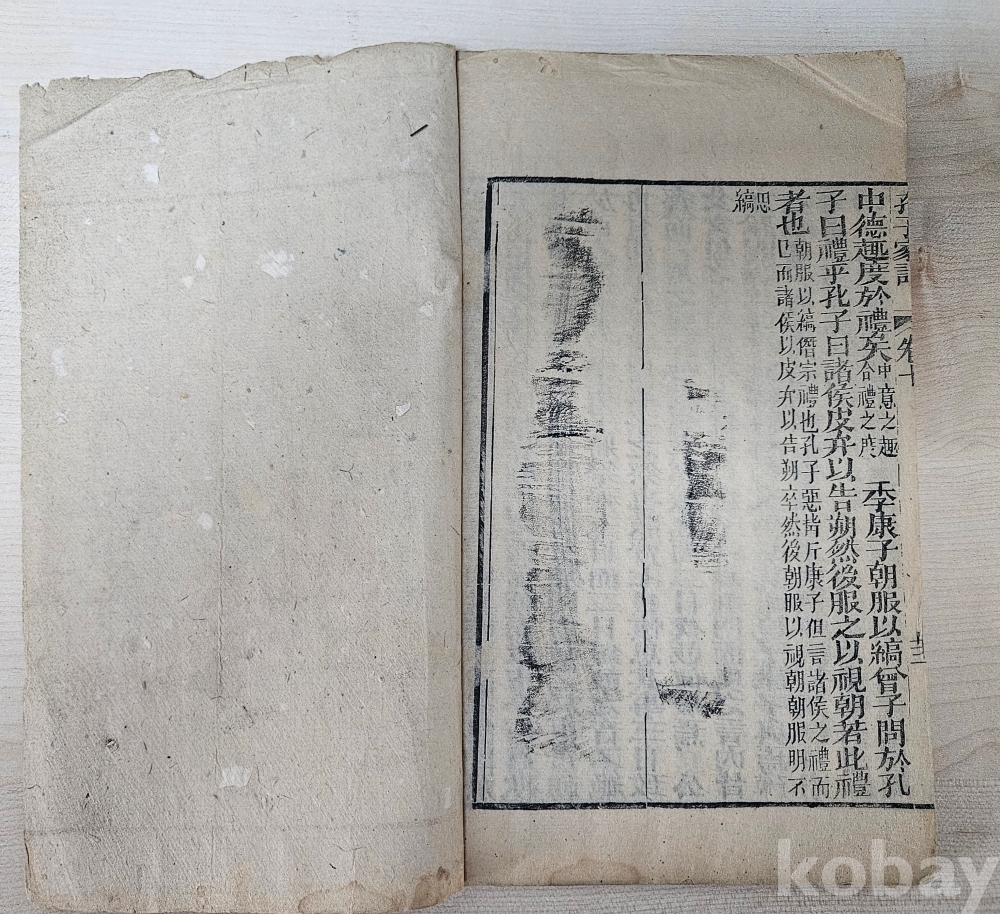 孔子家語 卷十
中德趣度於禮矣中意之趣合禮之度 季康子朝服以縞曾子問於孔
子曰禮乎孔子曰諸侯皮弁以告朔然後服之以視朝若此禮
者也
朝服以縞僭宗禮也孔子惡指斥康子但言諸侯之禮而
已而諸侯以皮弁以告朔卒然後朝服以視朝朝服明不
思
縞
kobay